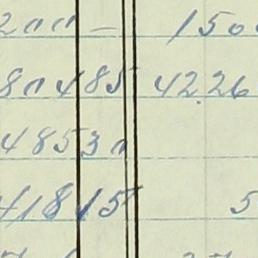 200 — 150
80485 42.26
48530
41815 5